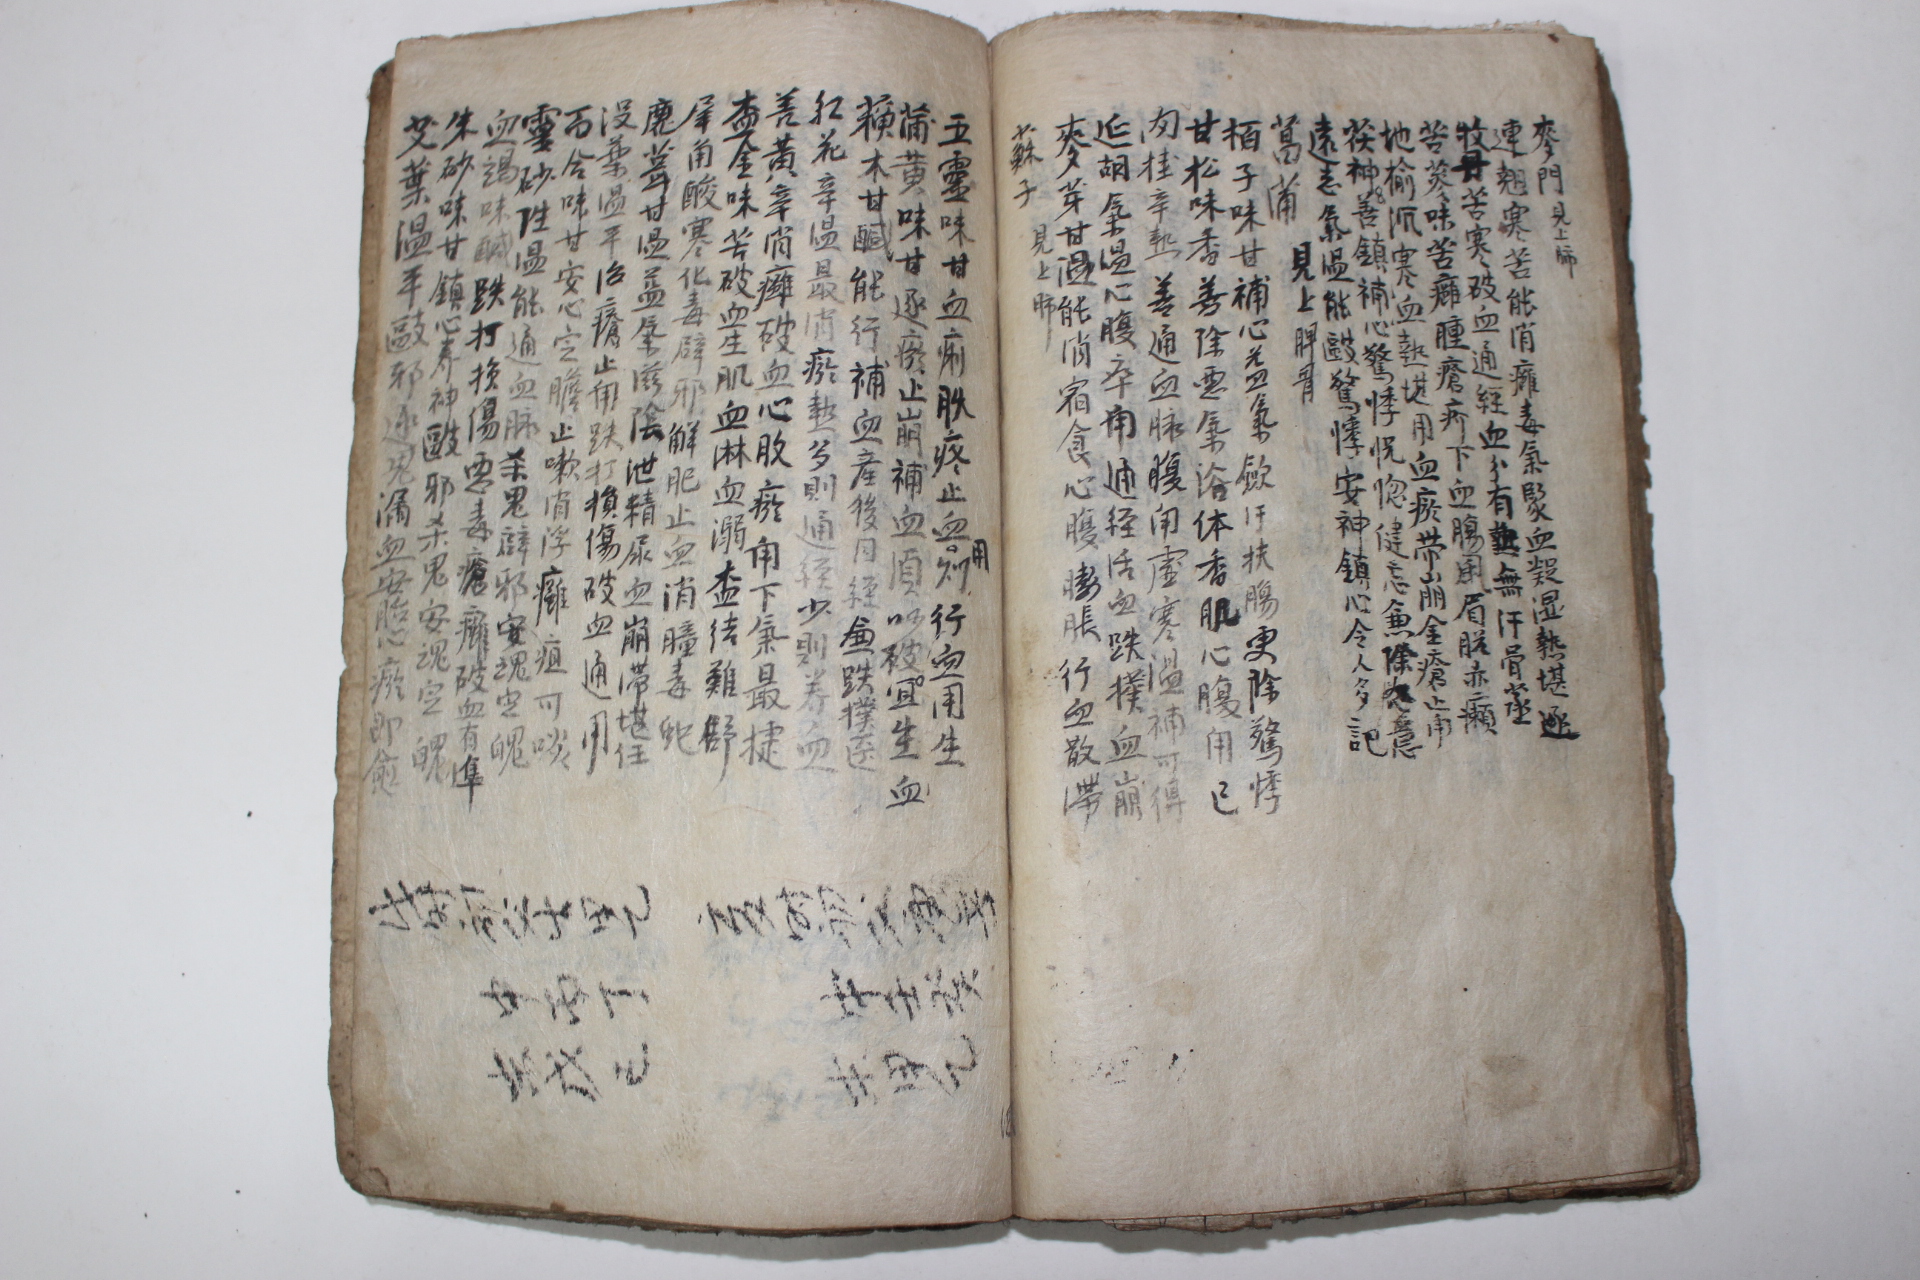 麥門 見上肺
連翹寒苦能消癰毒氣聚血凝湿熱堪逐
牧丹苦寒破血通經血分有熱無汗骨蒸
苦參味苦癰腫瘡疥下血腸風眉脫赤癩
地榆沉寒血熱堪用血痢帶崩金瘡止痛
茯神善鎮補心驚悸恍惚健忘兼除怒恚
遠志氣温能敺驚悸安神鎮心令人多記
菖蒲 見上脾胃
栢子味甘補心益氣歛汗扶腸更除驚悸
甘松味香善除悪氣浴体香肌心腹痛已
肉桂辛熱善通血脉腹痛虛寒温補可得
延胡氣温心腹卒痛通経活血跌撲血崩
麥芽甘温能消宿食心腹膨脹行血散滯
蘇子 見上肺
五靈味甘血痢脄疼止血用炒行血用生
蒲黃味甘逐瘀止崩補血須炒破血宜生
蘓木甘鹹能行補血産後月経兼跌撲医
紅花辛温最消瘀熱多則通経少則养血
姜黃辛消癰破血心脄瘀痛下氣最捷
欝金味苦破血生肌血淋血溺欝結難舒
犀角酸寒化毒辟邪解肥止血消腫毒蛇
鹿茸甘温益氣滋陰泄精尿血崩帶堪任
没藥温平治瘡止痛跌打損傷破血通用
百合味甘安心定膽止嗽消浮癰疽可啖
靈砂性温能通血脉杀鬼辟邪安魂定魄
血竭味鹹跌打損傷悪毒瘡癰破血有準
朱砂味甘鎮心养神敺邪杀鬼安魂定魄
艾葉温平敺邪逐鬼漏血安胎心瘀即愈